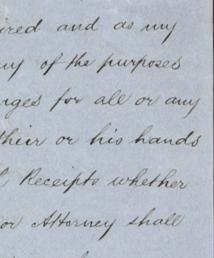 ired and as my
any of the purposes
nges for all or any
their or his hands
l Receipts whether
or Attorney shall